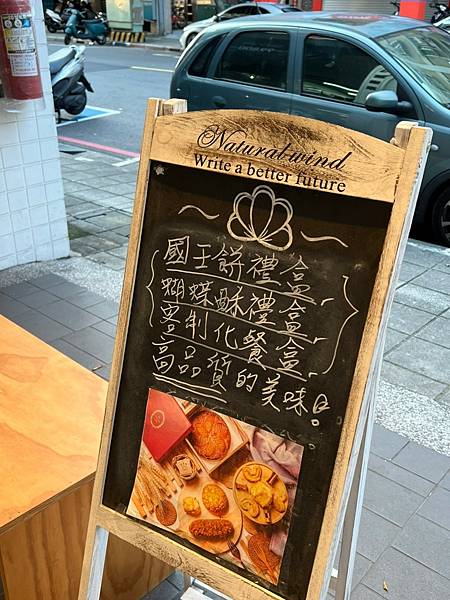 Natural wind
Write a better future
國王餅禮盒
蝴蝶酥禮盒
專制化餐盒
高品質的美味!